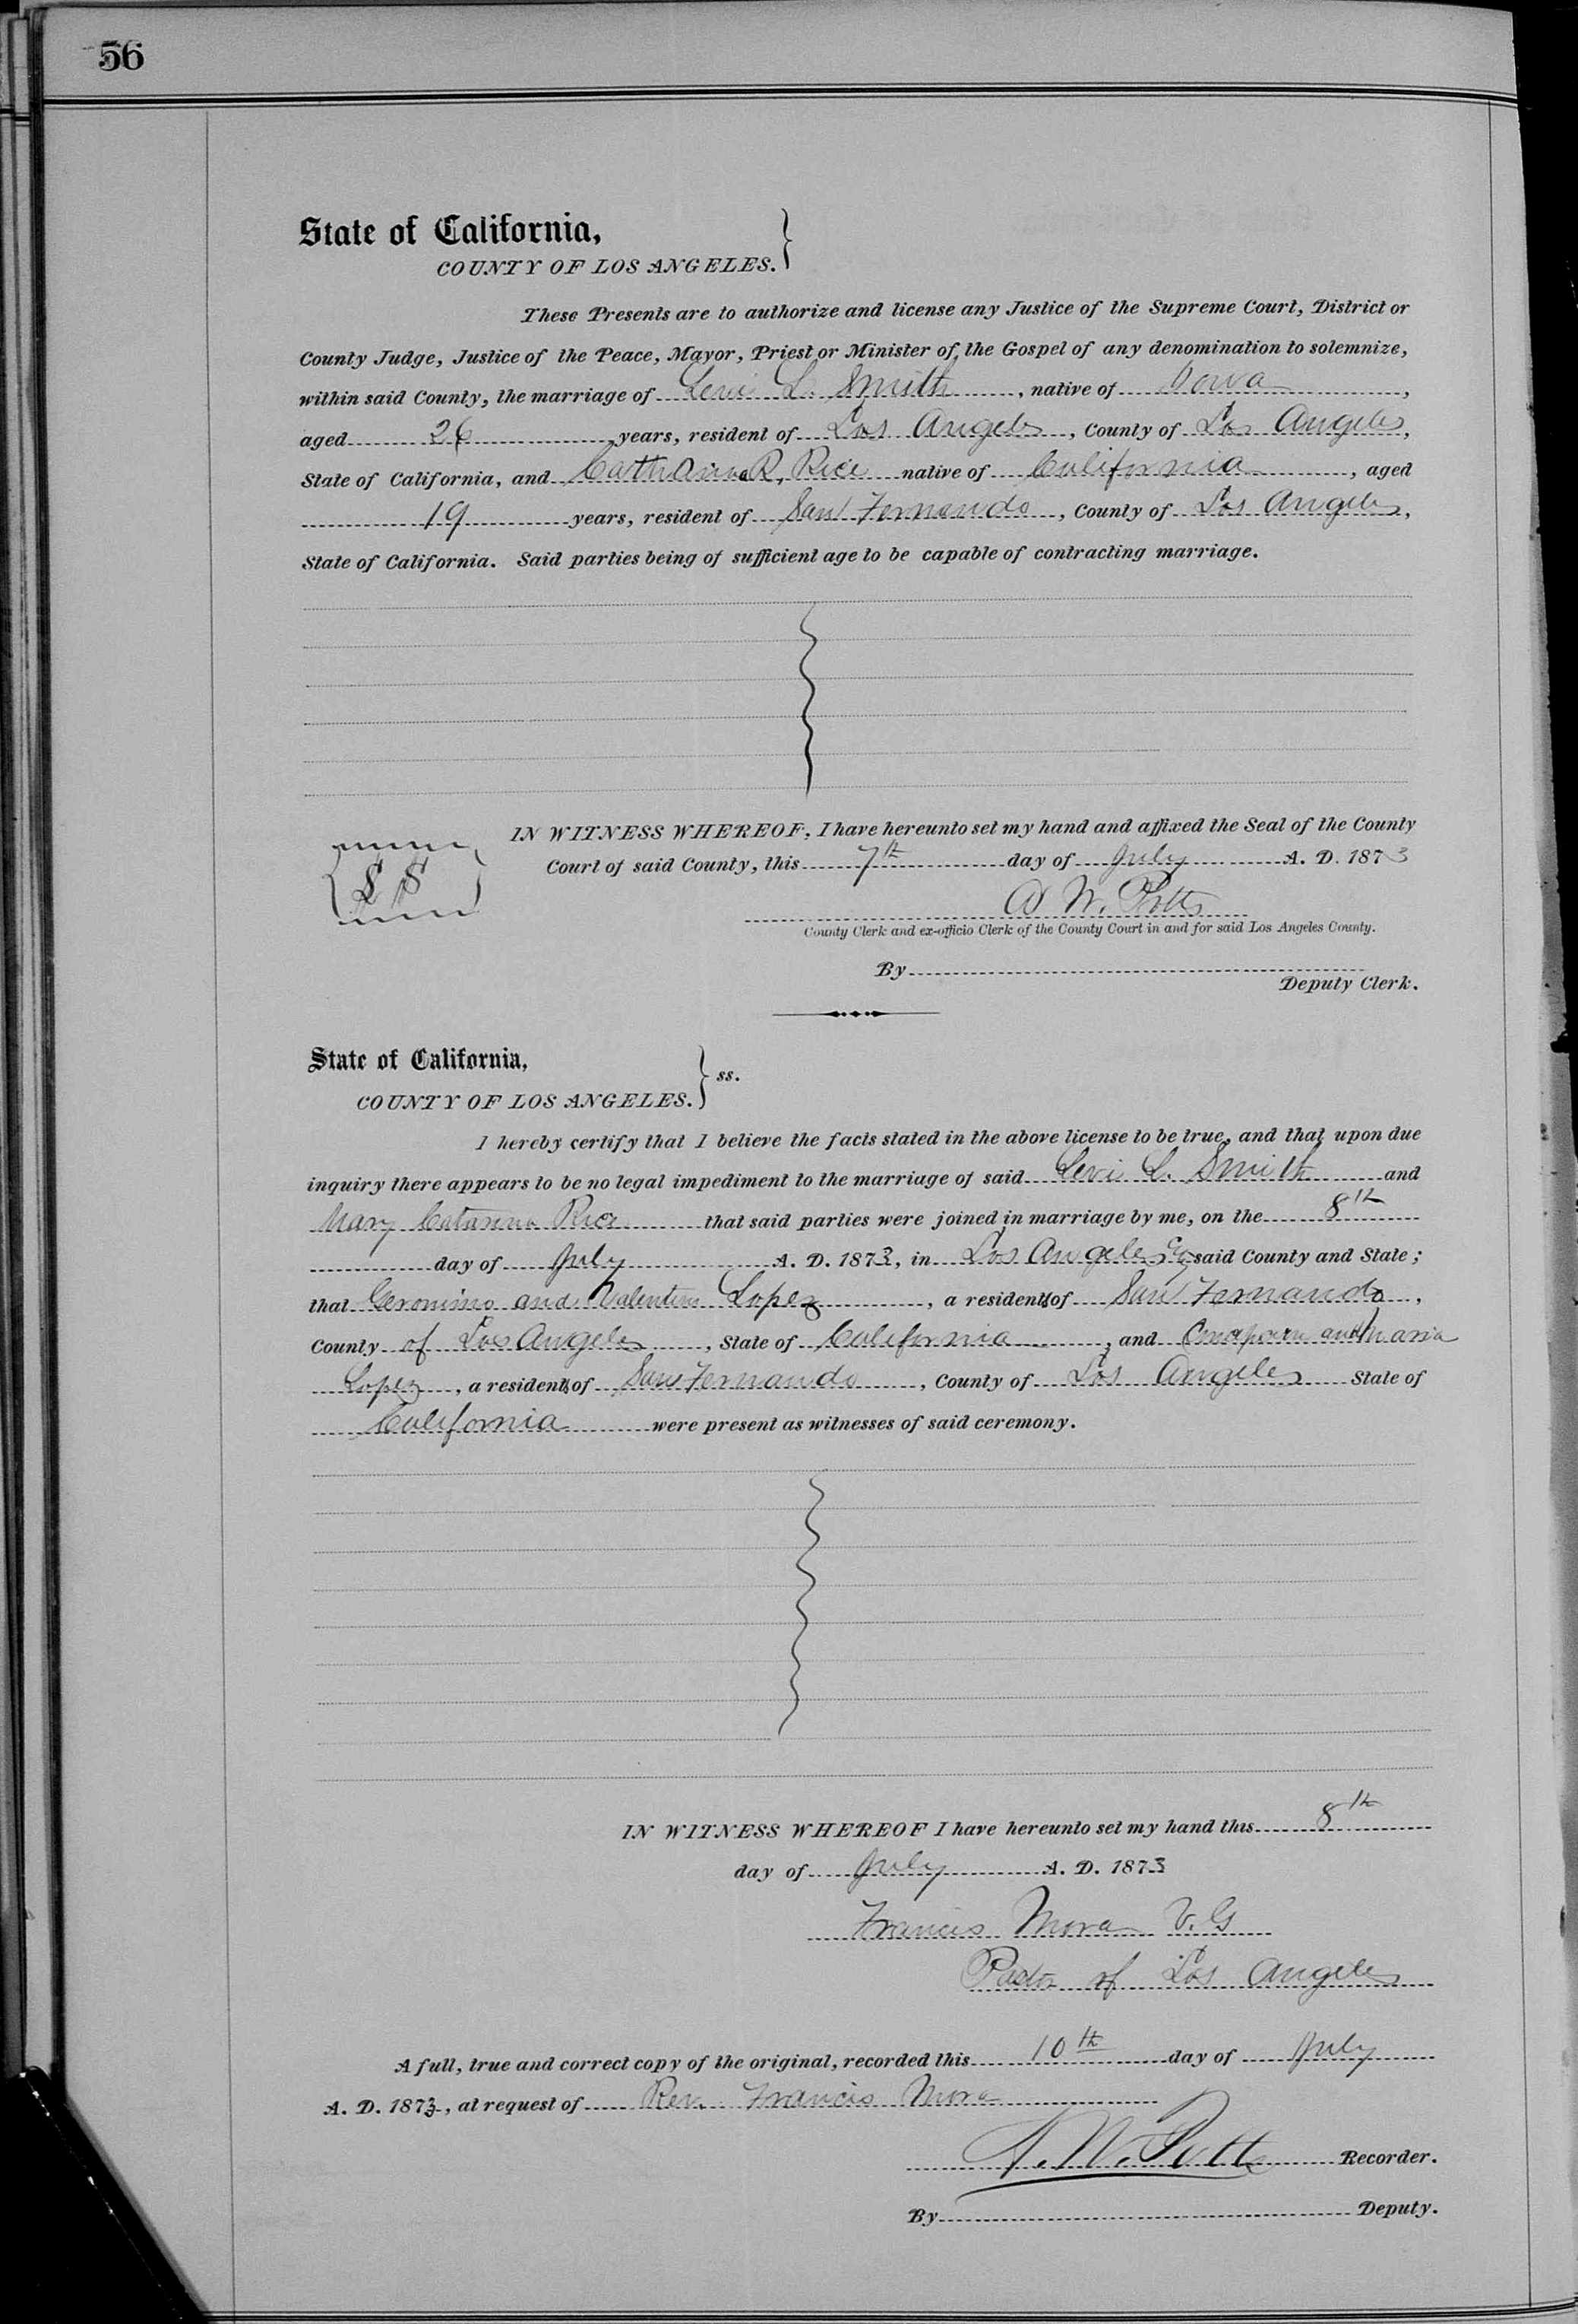 56
State of California,
COUNTY OF LOS ANGELES.
These Presents are to authorize and license any Justice of the Supreme Court, District or
County Judge, Justice of the Peace, Mayor, Priest or Minister of the Gospel of any denomination to solemnize,
within said County, the marriage of Levi L. Smith, native of Iowa,
aged 26 years, resident of Los Angeles, County of Los Angeles,
State of California, and Catharina R. Rice native of California, aged
19 years, resident of San Fernando, County of Los Angeles,
State of California. Said parties being of sufficient age to be capable of contracting marriage.
IN WITNESS WHEREOF, I have hereunto set my hand and affixed the Seal of the County
L S
Court of said County, this 7th day of July A. D. 1873
A W. Potts
County Clerk and ex-officio Clerk of the County Court in and for said Los Angeles County.
By
Deputy Clerk.
State of California,
COUNTY OF LOS ANGELES. ss.
I hereby certify that I believe the facts stated in the above license to be true, and that upon due
inquiry there appears to be no legal impediment to the marriage of said Levi L. Smith and
Mary Catarina Rice that said parties were joined in marriage by me, on the 8th
day of July A. D. 1873, in Los Angeles Co said County and State;
that Geronimo and Valentin Lopez, a residents of San Fernando,
County of Los Angeles, State of California, and and Maria
Lopez, a residents of San Fernando, County of Los Angeles State of
California were present as witnesses of said ceremony.
IN WITNESS WHEREOF I have hereunto set my hand this 8th
day of July A. D. 1873
Francis Mora V. G
Pastor of Los Angeles
A full, true and correct copy of the original, recorded this 10th day of July
A. D. 1873, at request of Rev. Francis Mora
A. W. Potts Recorder.
By Deputy.